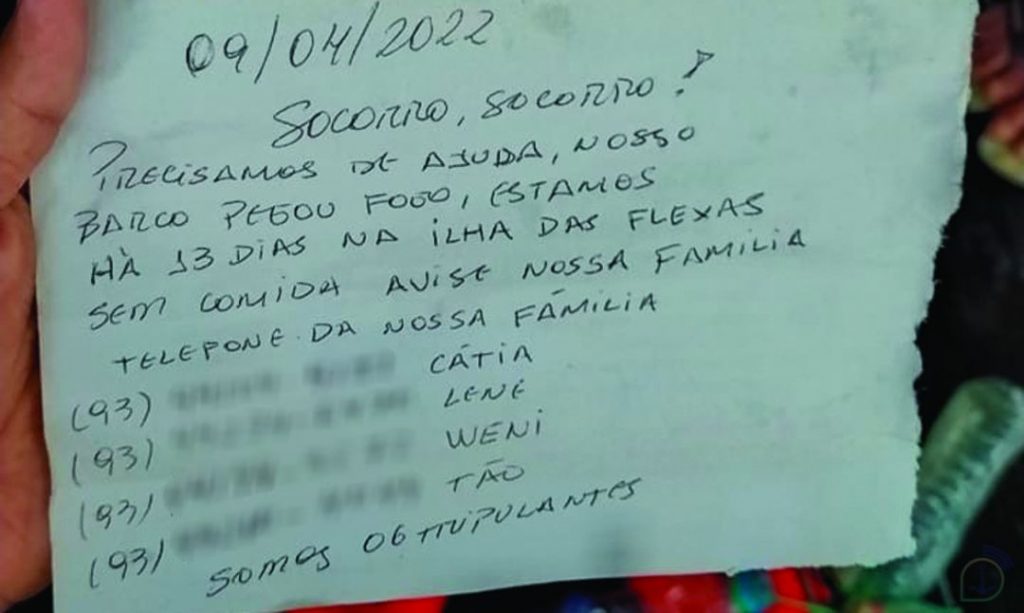 09/04/2022
SOCORRO, SOCORRO!
PRECISAMOS DE AJUDA, NOSSO
BARCO PEGOU FOGO, ESTAMOS
HÀ 13 DIAS NA ILHA DAS FLEXAS
SEM COMIDA AVISE NOSSA FAMILIA
TELEFONE DA NOSSA FÁMILIA
(93) CÁTIA
(93) LENE
(93) WENI
(93) TÃO
SOMOS 06 TRIPULANTES